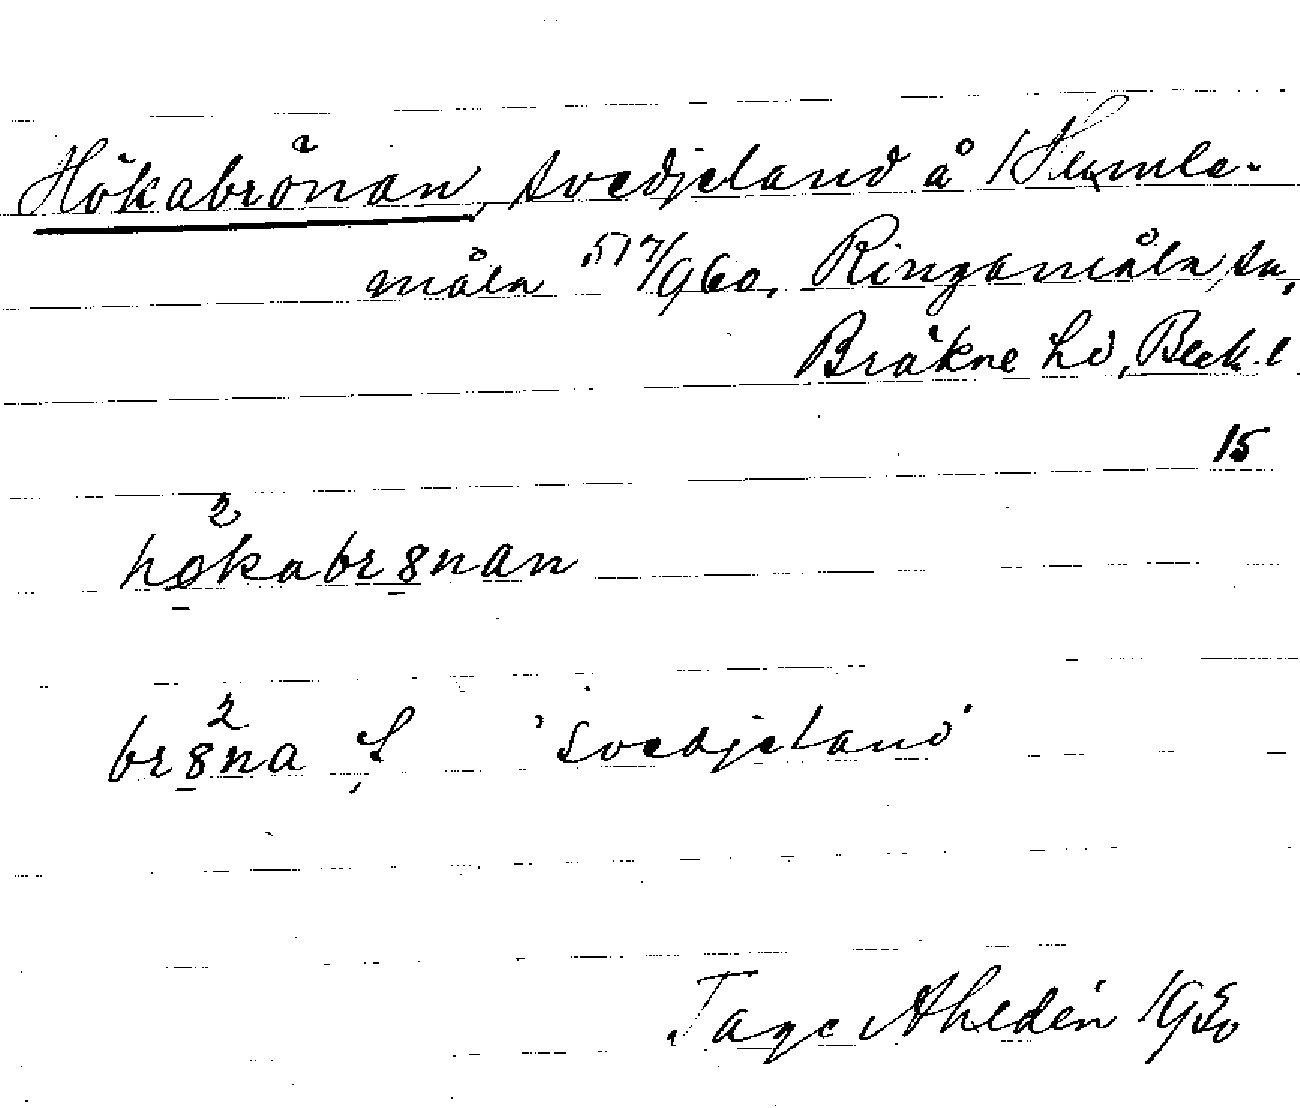 Hökabrönan, svedjeland å Humla-
måla 517/960, Ringamåla sn,
Bräkne hd, Blek. l
15
2
høkabr8nan
2
br8na f, 'svedjeland'
Tage Ahldén 1950